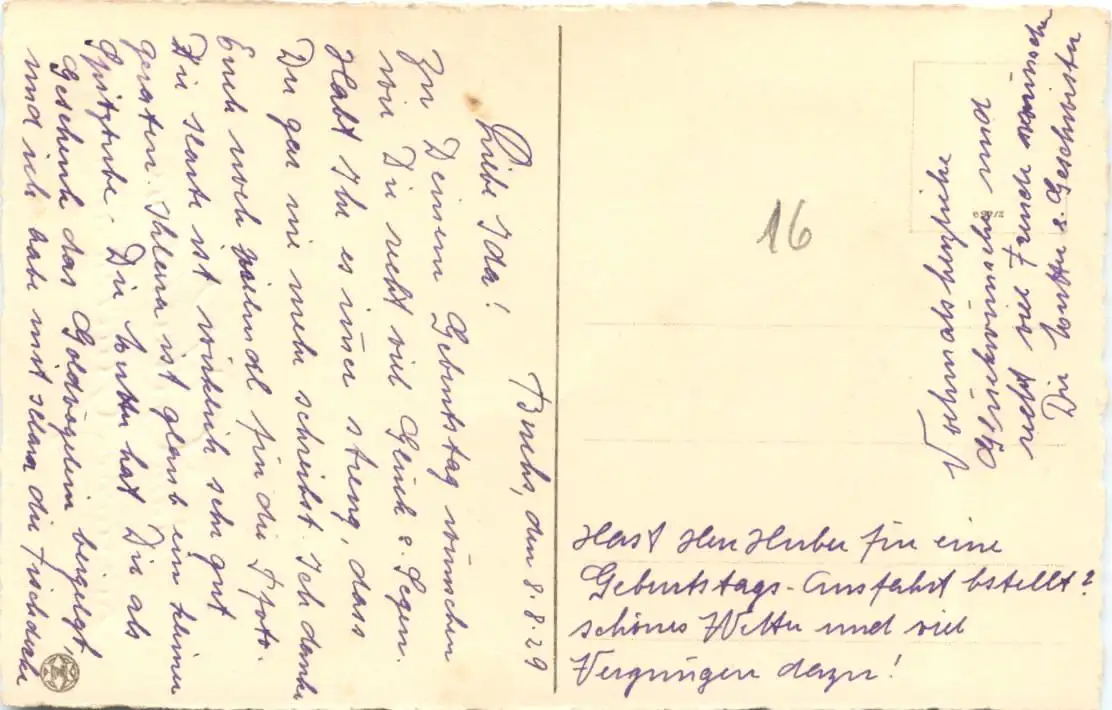 Buchs, den 8. 8. 29
Liebe Ida!
Zu Deinem Geburtstag wünschen
wir Dir recht viel Glück & Segen.
Habt Ihr es immer streng, dass
Du gar nie mehr schreibst. Ich danke
Euch noch vielmal für die Phot.
Die Karte ist wirklich sehr gut
geraten. Ihlein ist glaub ein kleiner
Spitzbube. Die Mutter hat Dir als
Geschenk das Goldvögelein beigelegt,
und ich habe mit Klara die Tischdecke
16
Vohmals herzliche
Glückwünsche und
recht viel Freude wünschen
Die Mutter & Geschwister
Hast Herr Huber für eine
Geburtstags-Ausfahrt bstellt?
schönes Wetter und viel
Vergnügen dazu!